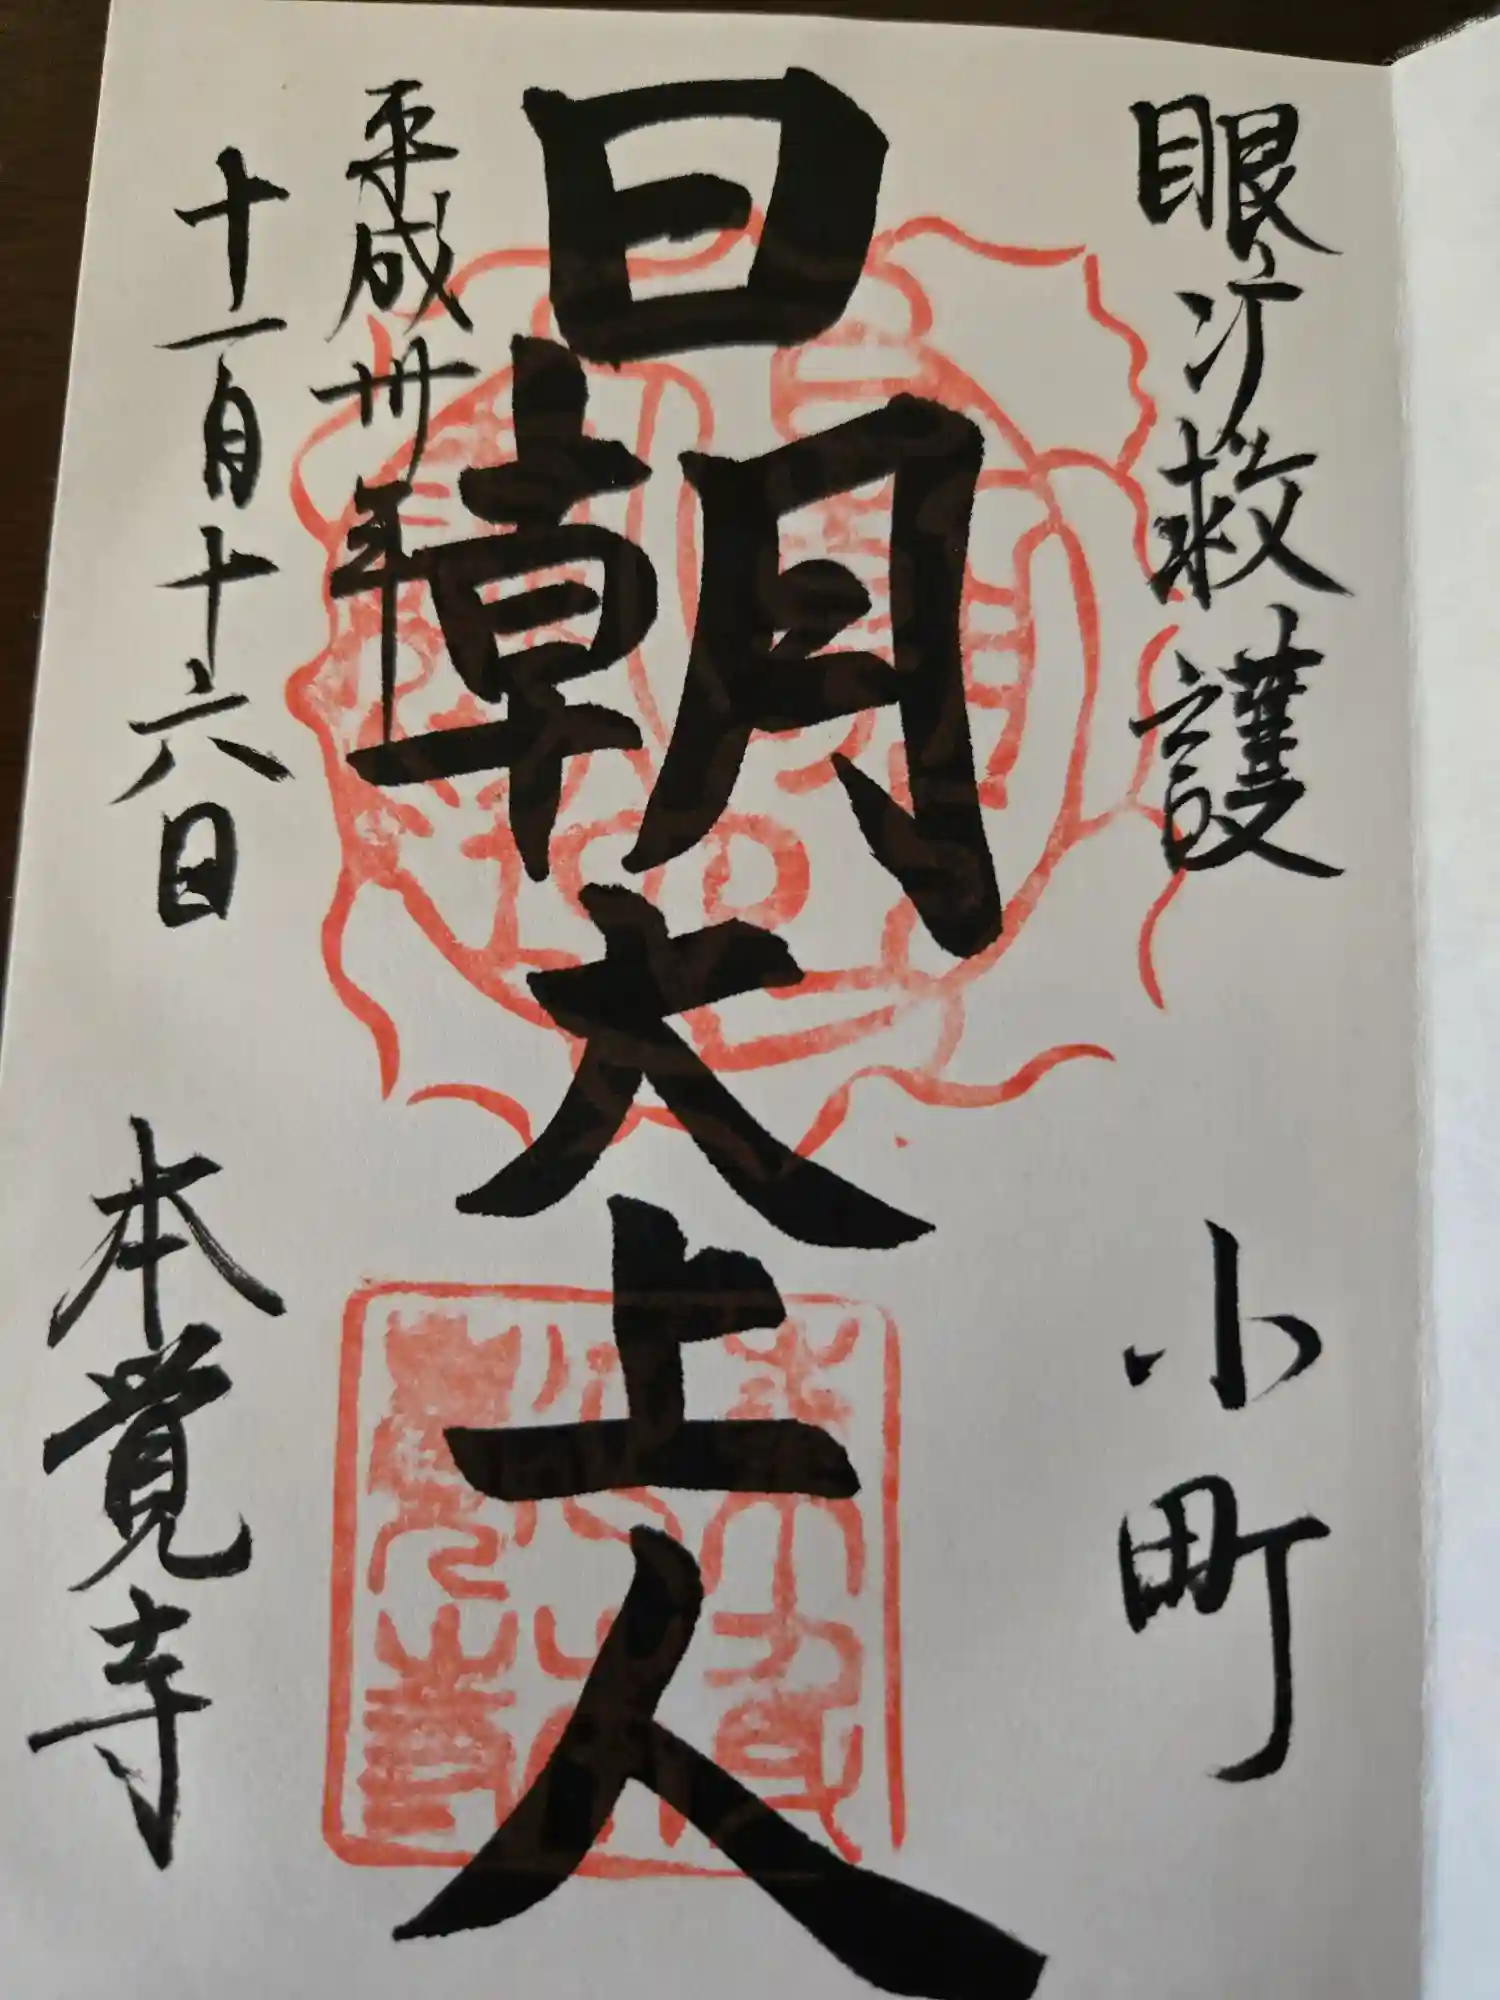 眼疒救護　小町
日朝大上人
平成卅年
十一月十六日　本覚寺